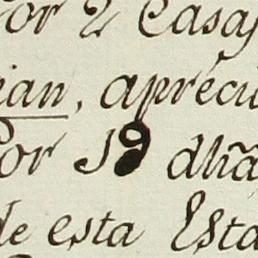 or 2 Casas
ian, aprecia
Por 19 dhã
de esta Esta